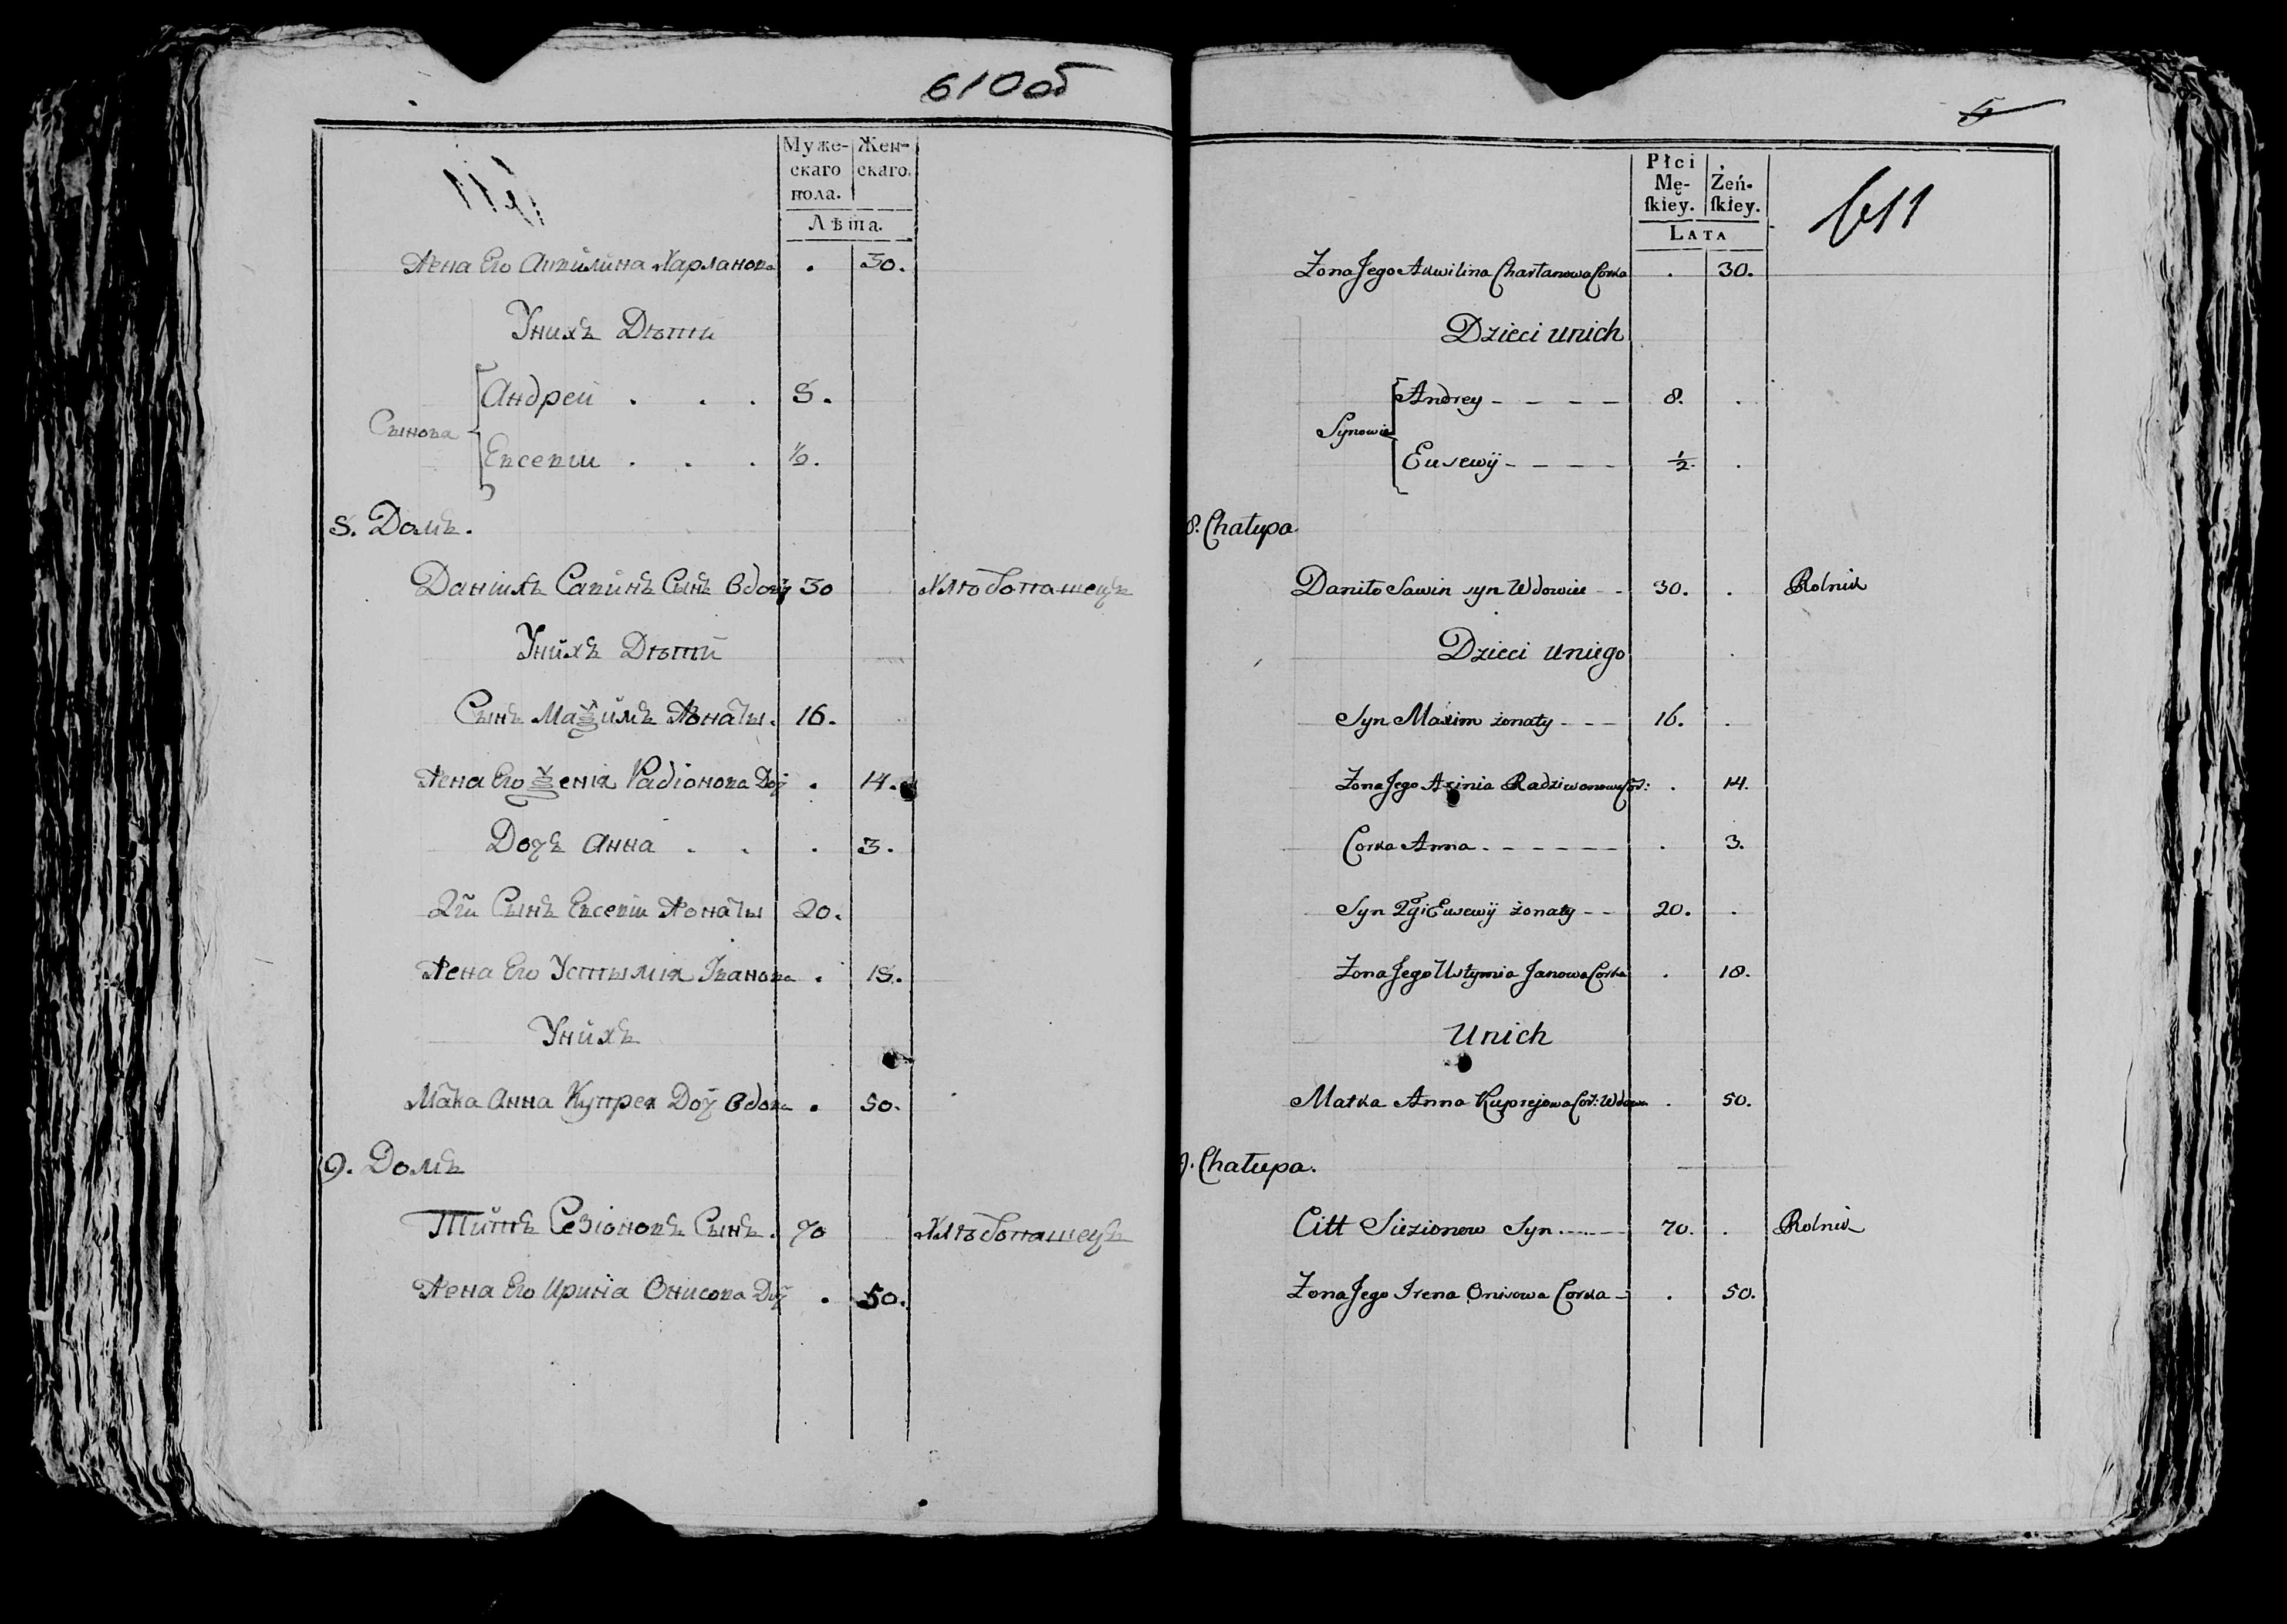 610об
Муже-
скаго
пола.
Жен-
скаго.
Лѣта.
Жена Его Аквилина Харланова . 30.
Унихъ Дѣтй
Сынова
Андрей . . . 8.
Евсевій . . . ½.
8. Домъ.
Данилъ Савинъ Сынъ Вдовъ 30 Хлѣбопашецъ
Унйхъ Дѣтй
Сынъ Маѯимъ Жонаты. 16.
Жена Его Ѯенія Радіонова Доч . 14.
Дочъ Анна . . . 3.
2гй Сынъ Евсевій Жонаты 20.
Жена Его Устымія Іванова . 18.
Унйхъ
Матка Анна Купрея Доч Вдова . 50.
9. Домъ
Тйтъ Сезіоновъ Сынъ. 70 Хлѣбопашецъ
Жена Его Ириніа Онисова Доч . 50.
5
611
Płci
Mę-
ſkiey.
Żeń-
ſkiey.
LATA
Żona Jego Akwilina Charłanowa Corka . 30.
Dzieci unich
Synowie
Andrey - - - - 8. .
Eusewij - - - - ½. .
8. Chałupa
Daniło Sawin syn Wdowiec - - 30. . Rolnik
Dzieci uniego .
Syn Maxim żonaty - - - 16. .
Żona Jego Axinia Radziwonowa Cor: . 14.
Corka Anna - - - - - - . 3.
Syn 2gi Eusewij żonaty - - 20. .
Żona Jego Ustymia Janowa Corka . 18.
Unich
Matka Anna Kuprejowa Cor: Wdowa . 50.
9. Chałupa.
Citt Siezionow Syn ...... 70. . Rolnik
Żona Jego Irena Onisowa Corka - . 50.